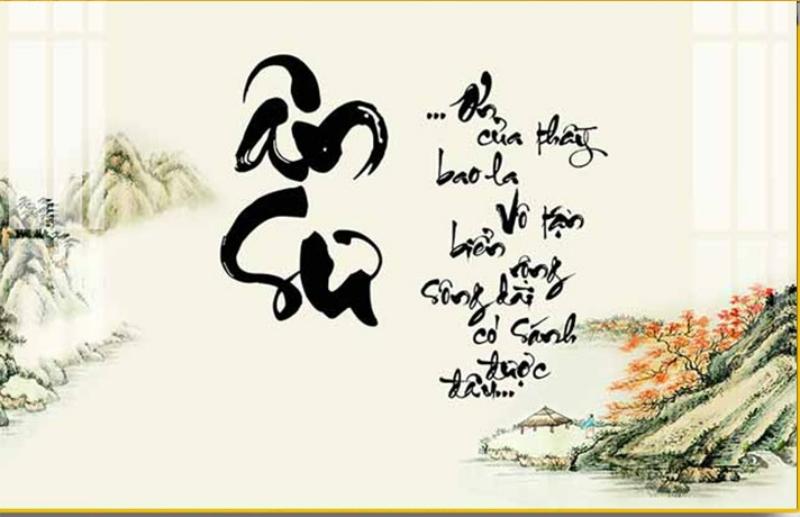 ân
sư
... Ơn
của thầy
bao la
Vô tận
biển rộng
sông dài
có sánh
được
đâu...